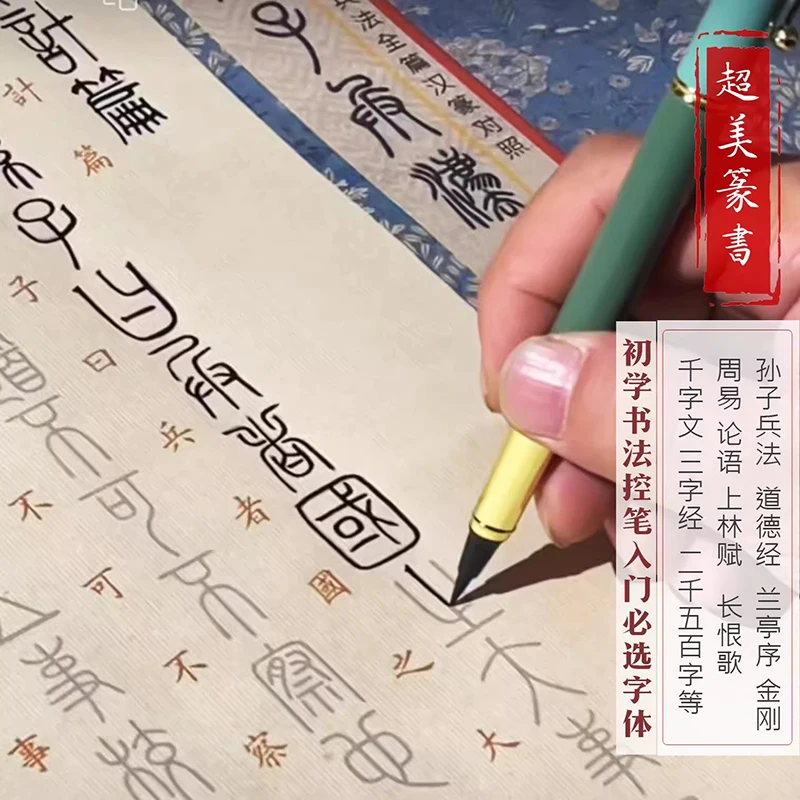 超美篆書
孙子兵法 道德经 兰亭序 金刚
周易 论语 上林赋 长恨歌
千字文 三字经 二千五百字等
初学书法控笔入门必选字体
兵法全篇汉篆对照
子兵灋
計篇
子曰兵者國之大
不可不察
事